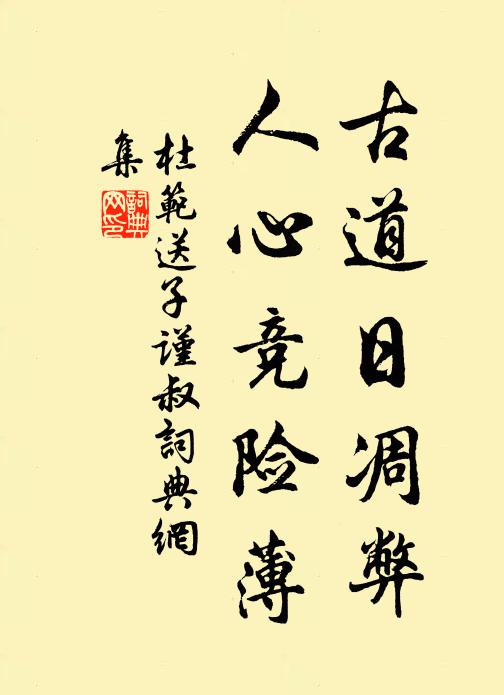 古道日凋弊
人心竞险薄
杜範送子謹叔詞典網
集
詞典網印